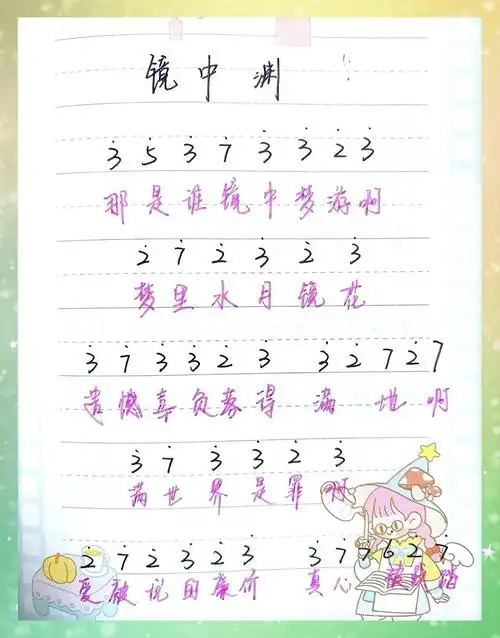 镜中渊
3̇ 5̇ 3̇ 7̇ 3̇ 3̇ 2̇ 3̇
那是谁镜中梦游啊
2̇ 7̇ 2̇ 3̇ 2̇ 3̇
梦里水月镜花
3̇ 7̇ 3̇ 3̇ 2̇ 3̇ 3̇ 2̇ 7 2̇ 7
遗憾辜负落得 满地啊
3̇ 7̇ 3̇ 3̇ 2̇ 3̇
满世界是罪啊
2̇ 7̇ 2̇ 3̇ 2̇ 3̇ 3̇ 7̇ 7 6 2̇ 7̇
爱被说的廉价 真心 被 踏